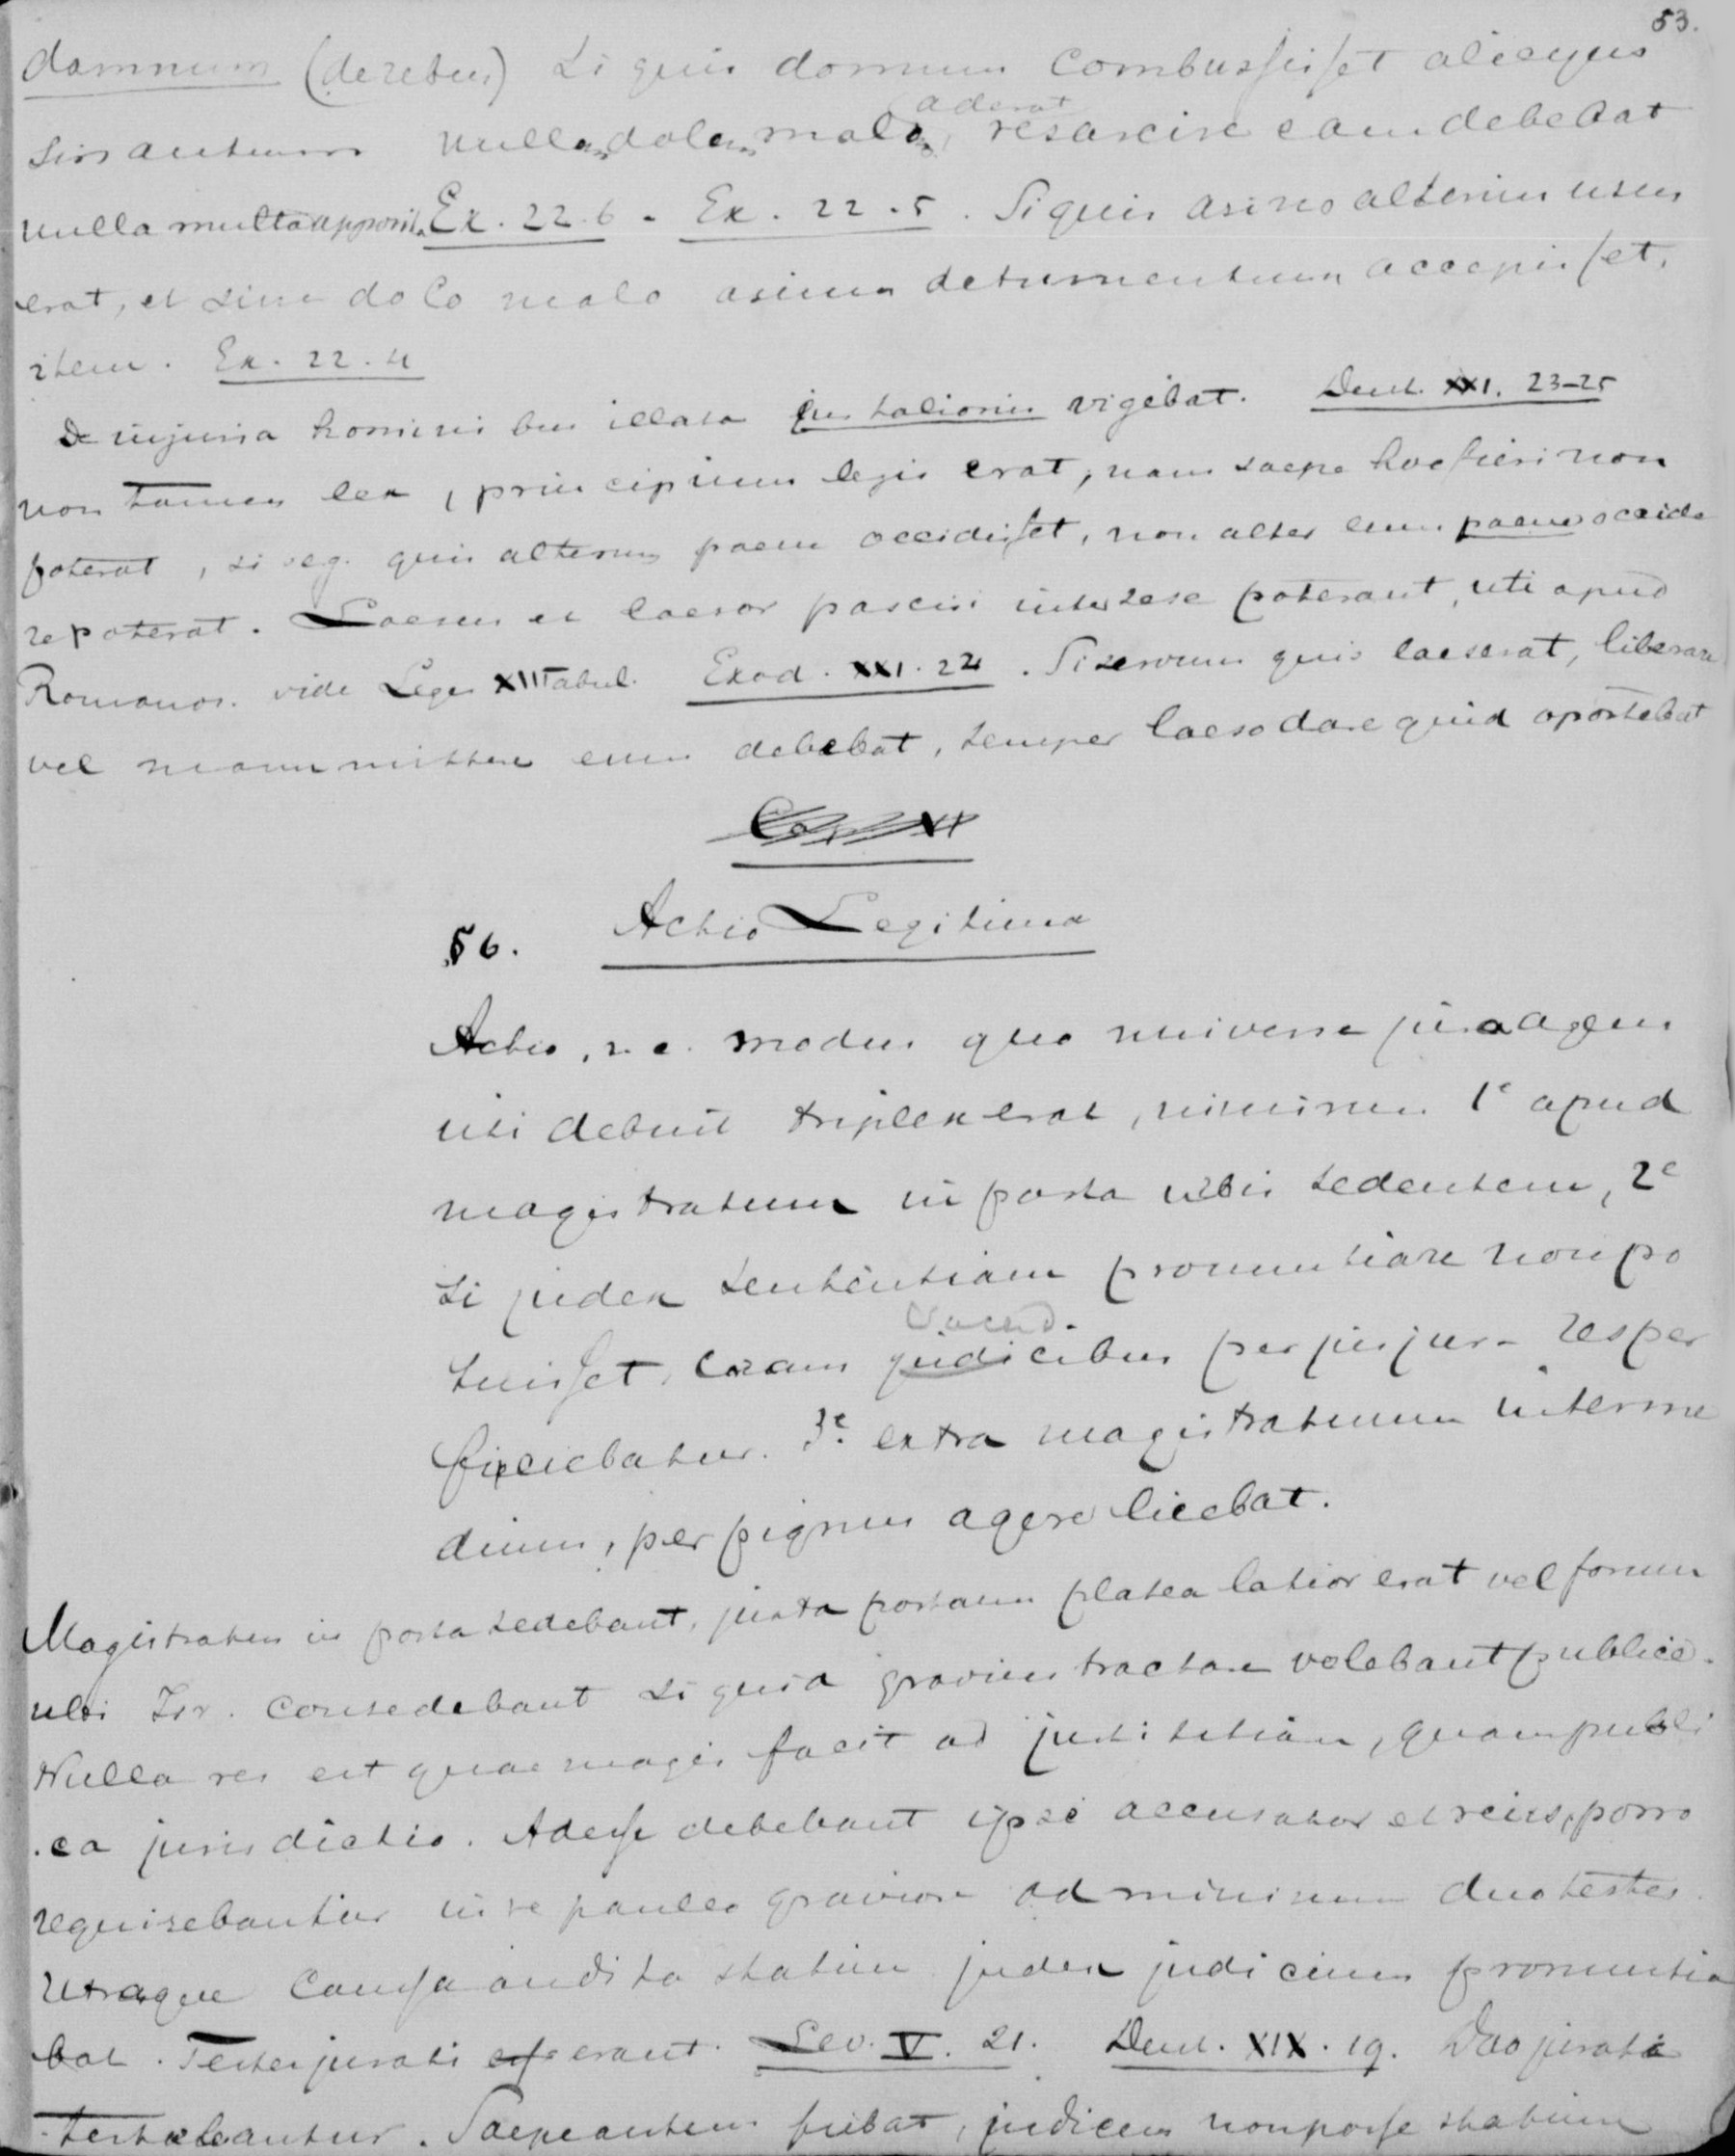 53.
damnum (de rebus) Si quis domum combussisset alicujus
aderat
sin autem nullus dolus malus, resarcire eam debebat
nulla multa apposita Ex. 22.6 - Ex. 22.5. Si quis asino alterius usus
erat, et sine dolo malo asinus detrimentum accepisset,
item. Ex. 22.4
De injuria hominibus illata jus talionis vigebat. Deut. XXI. 23-25
non tamen lex, principium legis erat, nam saepe hoc fieri non
poterat, si veg. quis alterum paene occidisset, non alter eum paene occide
re poterat. Laesus et laesor pascisi inter sese poterant, uti apud
Romanos. vide Leges XII Tabul. Exod. XXI. 22. Si servum quis laeserat, liberare
vel manumittere eum debebat, semper laeso dare quid oportebat
§6. Actio Legitima
Actio, i.e. modus quo universe jura agens
uti debuit triplex erat, nimirum 1e apud
magistratum in porta urbis sedentem, 2e
si judex sententiam pronuntiare non po
tuisset, coram judicibus per jusjur- res per
sacerd.
ficiebatur. 3e. extra magistratum interme
dium, per pignus agere licebat.
Magistratus in porta sedebant, juxta portam platea latior erat vel forum
ubi Isr. considebant si quid gravius tractare volebant publice.
Nulla res est quae magis facit ad justitiam, quam publi
ca jurisdictio. Adesse debebant ipsi accusator et reus, porro
requirebantur in re paullo graviore ad minimum duo testes.
Utraque caussa audita statim judex judicium pronuntia
bat. Testes jurati erant. Lev. V. 21. Deut. XIX. 19. Duo jurati
testabantur. Saepe autem fiebat, judicem non posse statim